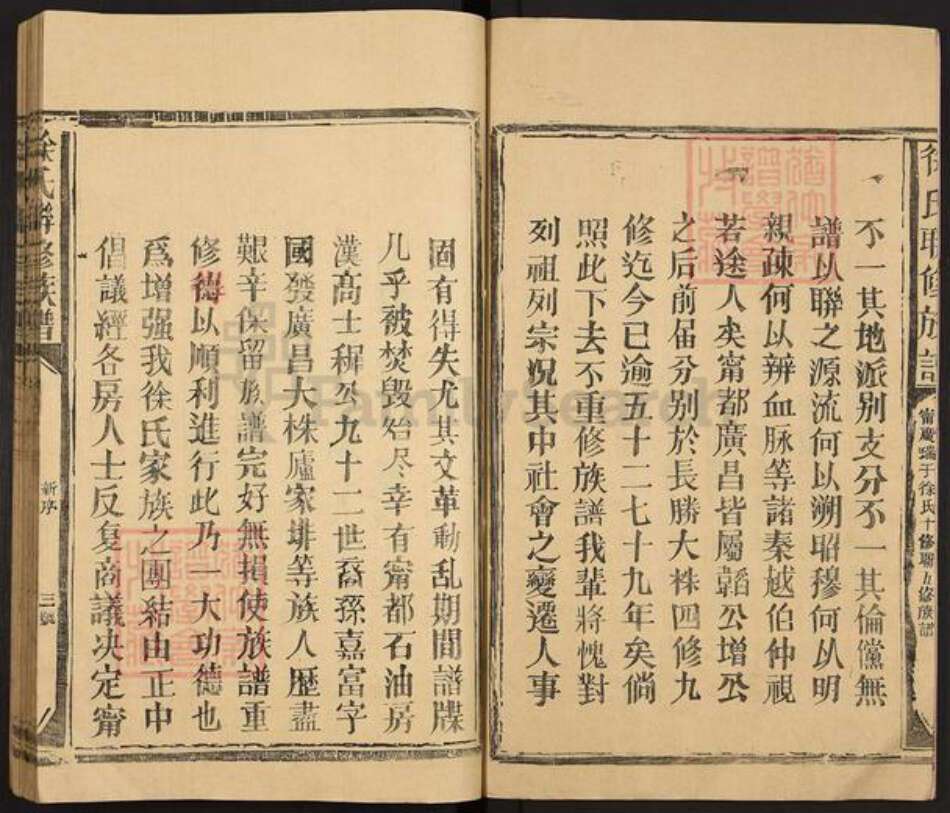 徐氏聯修族譜
甯慶瑞于徐氏十修聯九修族譜
不一其地派別支分不一其倫黨無
譜以聯之源流何以溯昭穆何以明
親疎何以辨血脉等諸秦越伯仲視
若途人矣甯都廣昌皆屬韜公增公
之后前届分别於長勝大株四修九
修迄今已逾五十二七十九年矣倘
照此下去不重修族譜我輩將愧對
列祖列宗况其中社會之變遷人事
固有得失尤其文革動乱期間譜牒
几乎被焚毁殆尽幸有甯都石油房
漢高士穉公九十二世裔孫嘉富字
國發廣昌大株廬家排等族人歷盡
艱辛保留族譜完好無損使族譜重
修得以順利進行此乃一大功德也
爲增强我徐氏家族之團結由正中
倡議經各房人士反复商議决定甯
徐氏聯修族譜
新序
三
FamilySearch